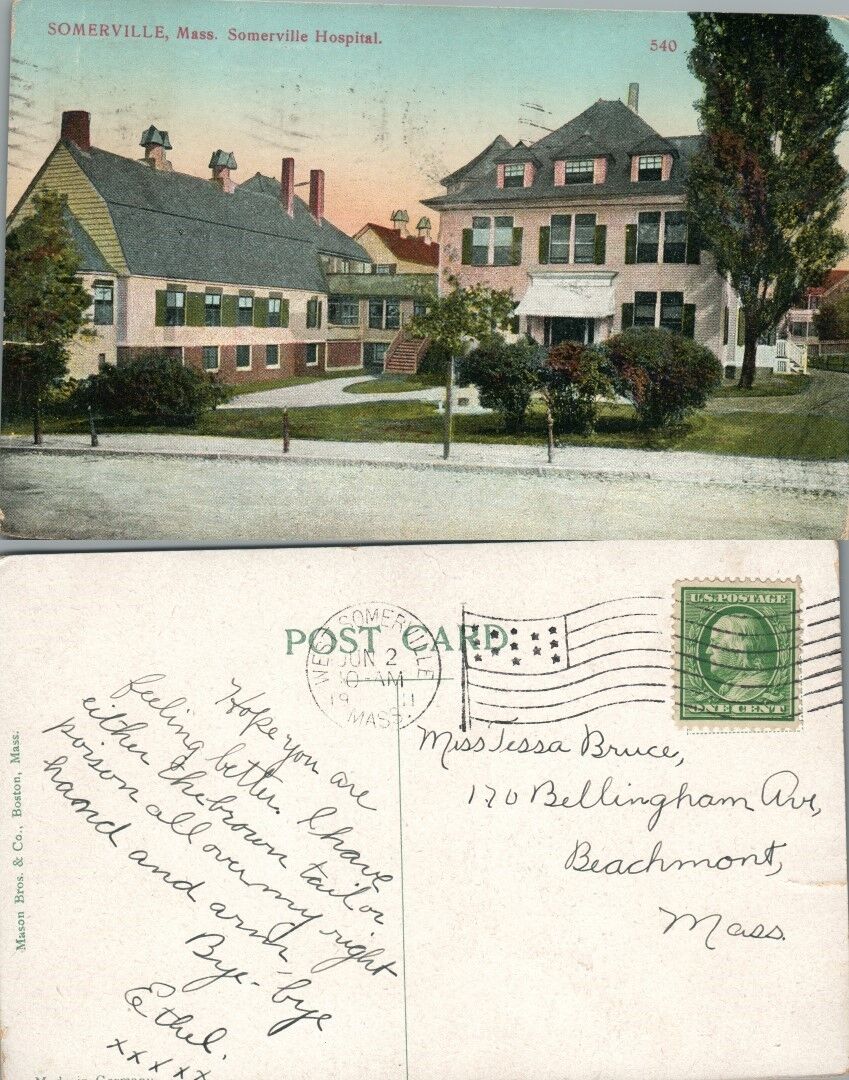 SOMERVILLE, Mass. Somerville Hospital.
540
POST CARD
WEST SOMERVILLE
JUN 2
10-AM
1911
MASS.
U.S. POSTAGE
ONE CENT
Hope you are
feeling better. I have
either the brown tail or
poison all over my right
hand and arm
Bye-bye
Ethel.
x x x x x
Miss Tessa Bruce,
170 Bellingham Ave,
Beachmont,
Mass.
Mason Bros. & Co., Boston, Mass.
Made in Germany